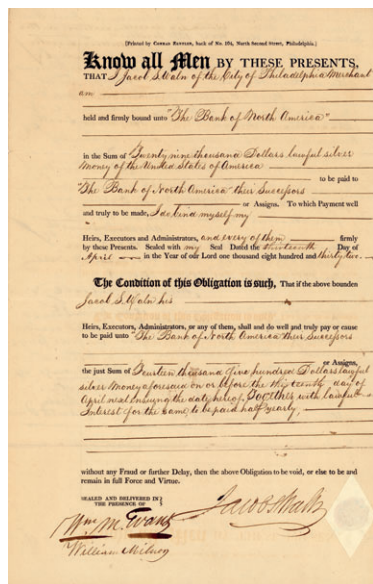 [Printed by Conrad Zentler, back of No. 194, North Second Street, Philadelphia.]
Know all Men BY THESE PRESENTS,
THAT I Jacob S. Waln of the City of Philadelphia Merchant
am
held and firmly bound unto "The Bank of North America"
in the Sum of Twenty nine thousand Dollars lawful silver
Money of the United States of America
to be paid to
"The Bank of North America" their Successors
or Assigns. To which Payment well
and truly to be made, I do bind myself my
Heirs, Executors and Administrators, and every of them firmly
by these Presents. Sealed with my Seal Dated the Day of
April in the Year of our Lord one thousand eight hundred and thirty two
The Condition of this Obligation is such, That if the above bounden
Jacob S. Waln his
Heirs, Executors, Administrators, or any of them, shall and do well and truly pay or cause
to be paid unto "The Bank of North America their Successors
or Assigns,
the just Sum of Fourteen thousand five hundred Dollars lawful
silver Money aforesaid on or before the day of
April next ensuing the date hereof, Together with lawful
Interest for the same, to be paid half yearly,
without any Fraud or further Delay, then the above Obligation to be void, or else to be and
remain in full Force and Virtue.
SEALED AND DELIVERED IN
THE PRESENCE OF
Jacob S Waln
Wm. M. Evans
William Milnor